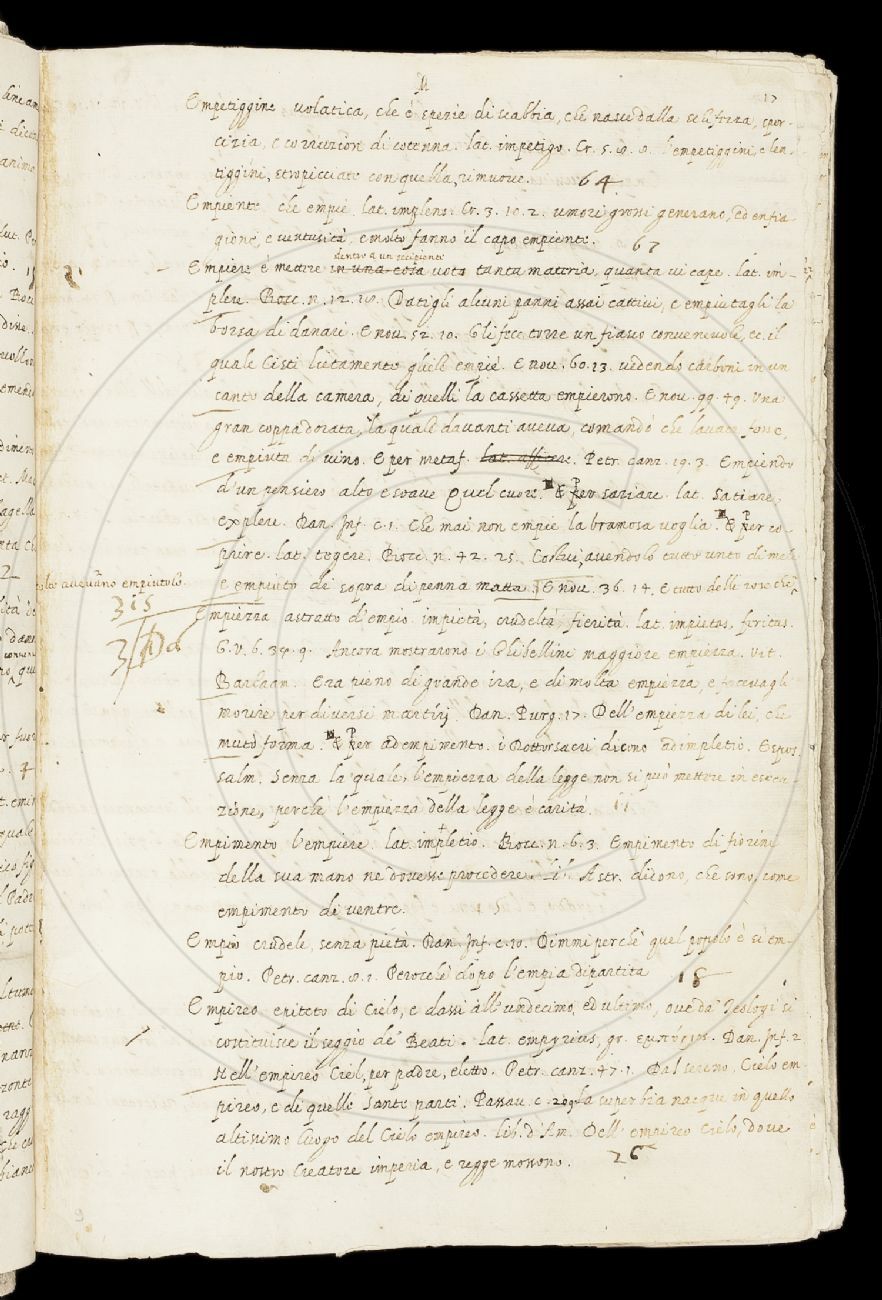 M
17
Empetiggine volatica, che è spezie di scabbia, che nasce dalla schifezza, spor-
cizia, e corruzion di cotenna. lat. impetigo. Cr. 5. l'empetiggini, e len-
tiggini, stropicciate con quella, rimuove. 64
Empiente che empie. lat. implens. Cr. 3. 10. 2. umori grossi generano, ed enfia
gione, e ventusità, e molto fanno il capo empiente. 67
dentro a un recipiente
Empiere è mettere in una cosa vota tanta materia, quanta vi cape. lat. im-
plere. Bocc. n. 12. Datigli alcuni panni assai cattivi, e empiutagli la
borsa di danari. E nov. 52. 10. Gli fece torre un fiasco convenevole, ec. il
quale Cisti lietamente gliele empié. E nov. 60. 13. vedendo carboni in un
canto della camera, di quelli la cassetta empierono. E nov. 99. 49. Una
gran coppa dorata, la quale davanti aveva, comandò che lavata fosse,
e empiuta di vino. E per metaf. Petr. canz. 19. 3. Empiendo
d'un pensiero alto e soave Quel cuore. E Per saziare. lat. satiare,
explere. Dan. Inf. c. 1. Che mai non empie la bramosa voglia. E Per co-
prire. lat. tegere. Bocc. n. 42. 25. Costui, avendolo tutto unto di mele
e empiuto di sopra di penna matta. E nov. 36. 14. E tutto delle rose che
colte avevano empiutolo.
315
Empiezza astratto d'empio impietà, crudeltà, fierità. lat. impietas, feritas.
G. V. 6. 34. 9. Ancora mostrarono i Ghibellini maggiore empiezza. Vit.
Barlaam. Era pieno di grande ira, e di molta empiezza, e facevagli
morire per diversi martirj. Dan. Purg. 17. Dell'empiezza di lei, che
mutò forma. E Per adempimento. i Dottor sacri dicono adimpletio. Espos.
salm. Senza la quale, l'empiezza della legge non si può mettere in esecu-
zione, perchè l'empiezza della legge è carità. 11
Empimento l'empiere. lat. impletio. Bocc. n. 6. 3. Empimento di fiorini
della sua mano ne dovesse procedere. Astr. di dono, che sono, come
empimento di ventre.
Empio crudele, senza pietà. Dan. Inf. c. 10. Dimmi perchè quel popolo è sì em-
pio. Petr. canz. Perocchè dopo l'empia dipartita 18
Empireo epiteto di Cielo, e dassi all'undecimo, ed ultimo, ove da Teologi si
costituisce il seggio de' Beati. lat. empyreus, gr. εμπύριος. Dan. Inf. 2.
Nell'empireo Ciel, per padre, eletto. Petr. canz. 47. 1. Dal sereno, Cielo em-
pireo, e di quelle sante parti. Passav. c. 209. la superbia nacque in quello
altissimo luogo del Cielo empireo. lib. d'Am. Dell'empireo Cielo, dove
il nostro Creatore imperia, e regge mossono. 26
9